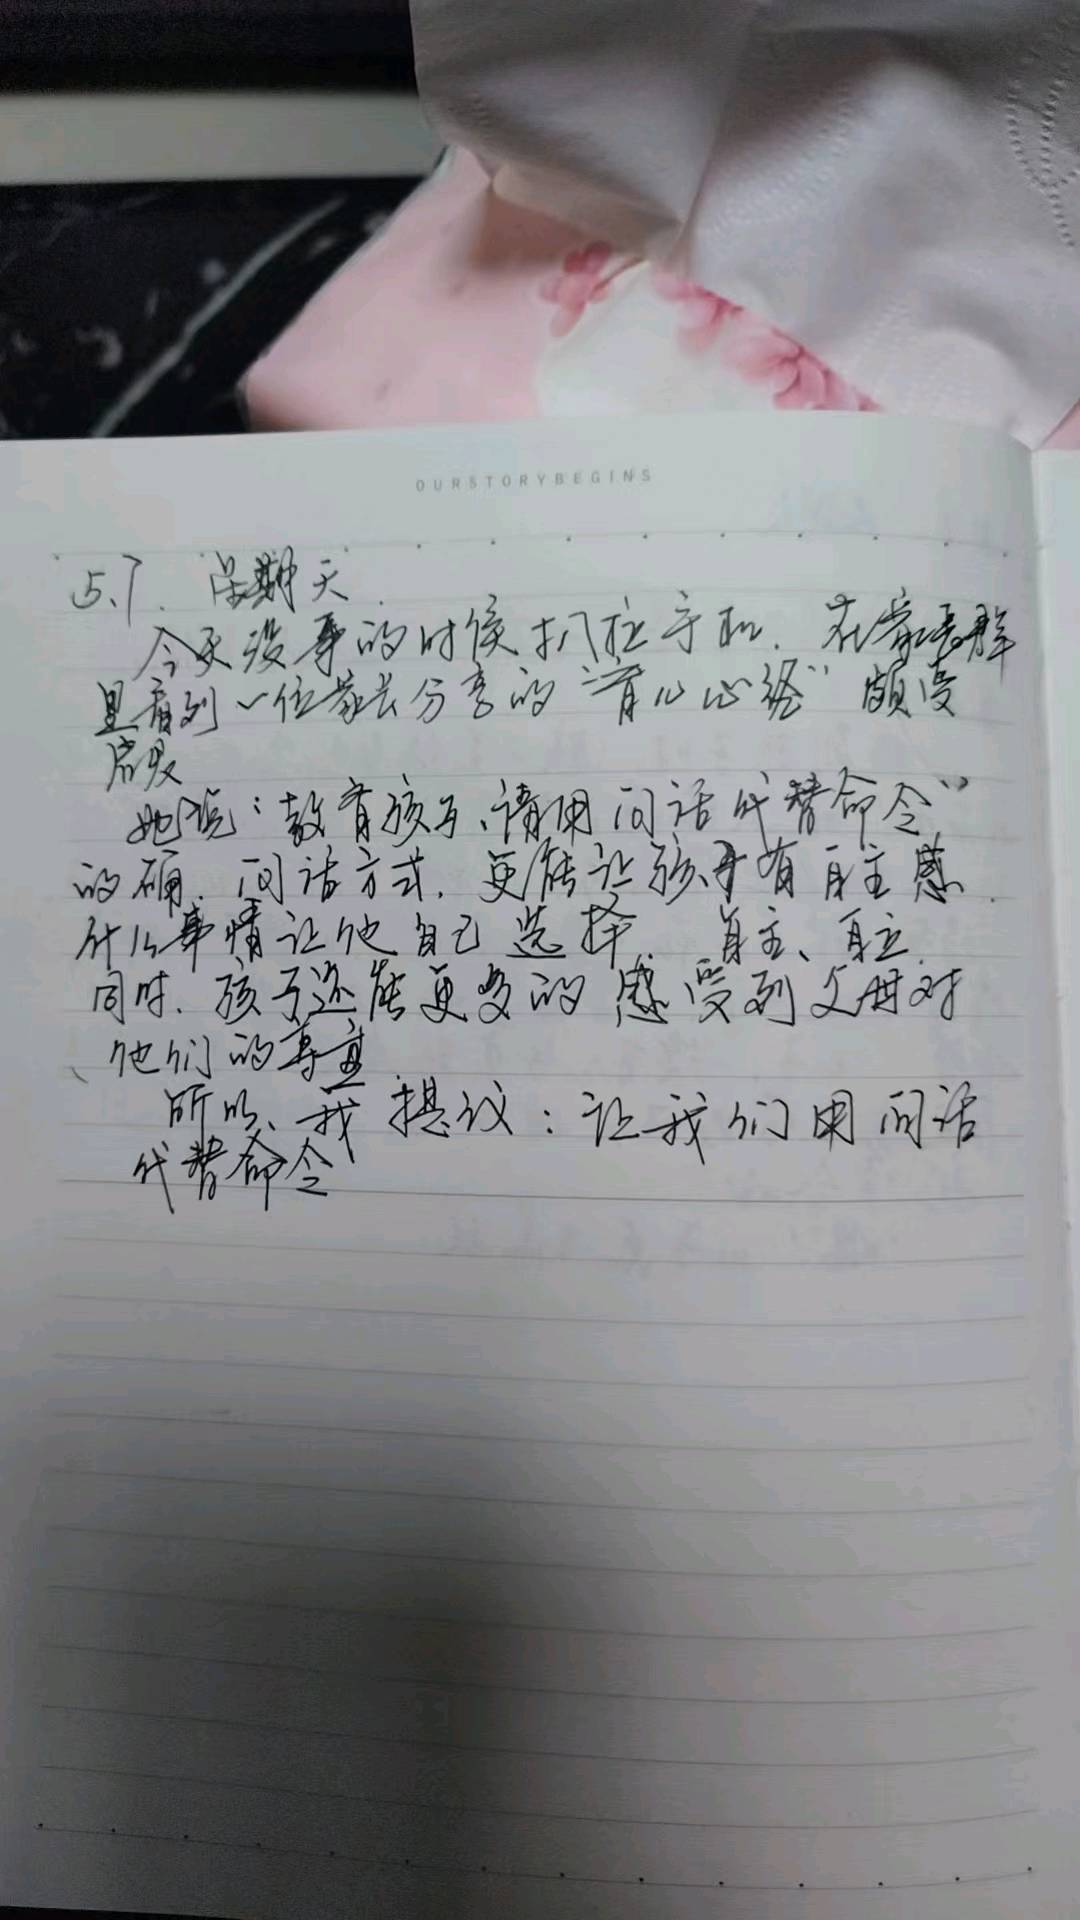 OURSTORYBEGINS
5.7. 星期天.
今天没事的时候扒拉手机. 在家长群
里看到一位家长分享的“育儿心经”颇受
启发
她说:教育孩子、请用问话代替命令”
的确. 问话方式. 更能让孩子有自主感.
什么事情让他自己选择. 自主、自立.
同时. 孩子还能更多的感受到父母对
、他们的尊重.
所以、我提议:让我们用问话
代替命令